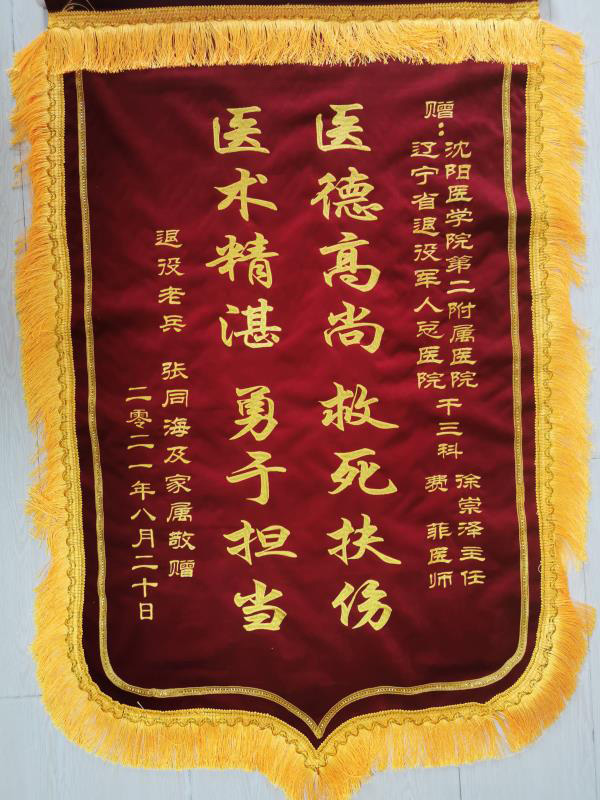 赠：沈阳医学院第二附属医院
辽宁省退役军人总医院
干三科
徐崇泽主任
费 菲医师
医德高尚 救死扶伤
医术精湛 勇于担当
退役老兵 张同海及家属敬赠
二零二一年八月二十日